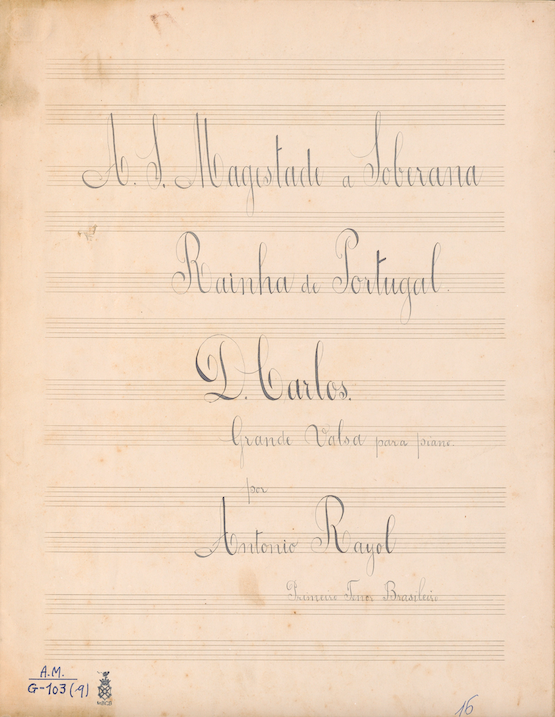 A. S. Magestade a Soberana
Rainha de Portugal.
D. Carlos.
Grande Valsa para piano.
por
Antonio Rayol
Primeiro Tenor Brasileiro
A.M.
G-103(-9)
16